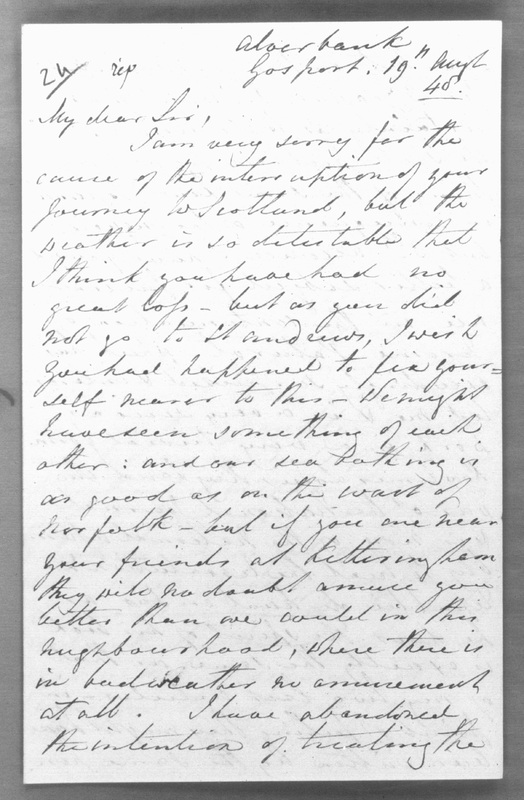 Alverbank
24 rep Gosport. 19th Augt
48.
My dear Sir,
I am very sorry for the
cause of the interruption of your
Journey to Scotland, but the
weather is so detestable that
I think you have had no
great loss - but as you did
not go to St Andrews, I wish
you had happened to fix your=
self nearer to this - We might
have seen something of each
other: and our sea bathing is
as good as on the coast of
Norfolk - but if you are near
your friends at Ketteringham
they will no doubt amuse you
better than we could in this
neighbourhood, where there is
in bad weather no amusement
at all. I have abandoned
the intention of treating the